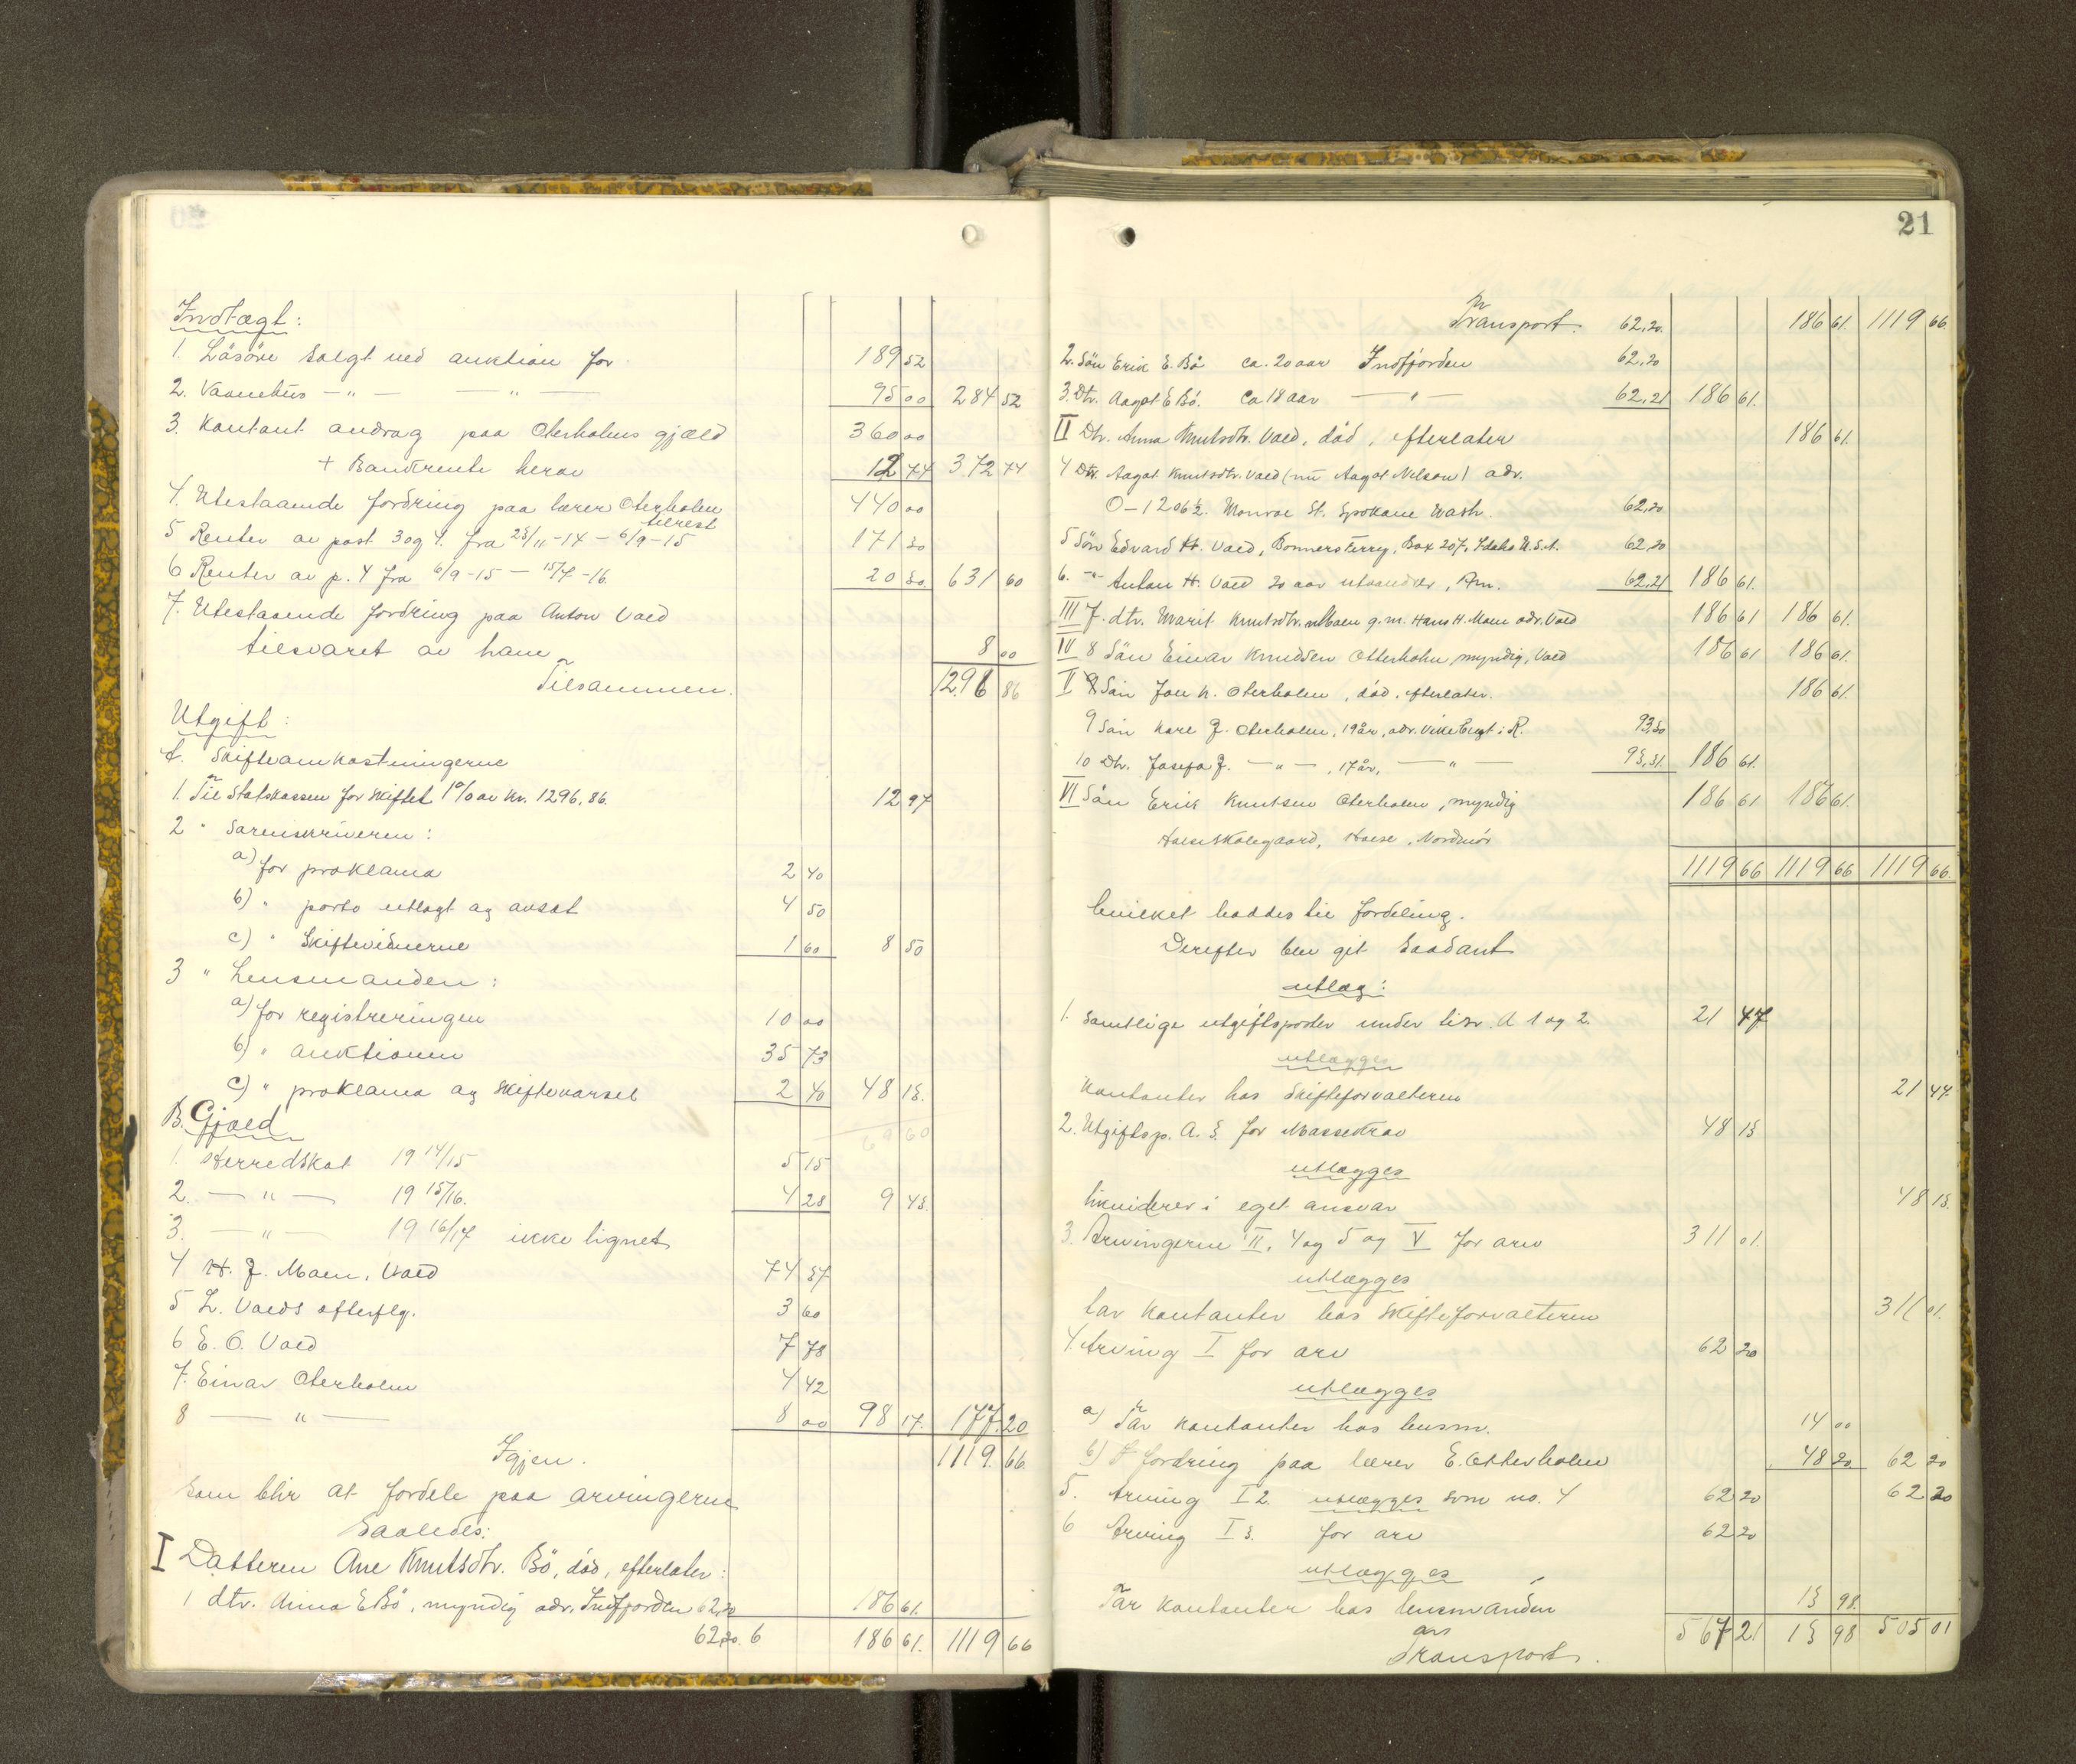 Indtægt:
1. Løsøre solgt ved auktion for 189 52
2. Vaanehus — " — — " — 95 00 284 52
3. Kontant andrag paa Oterholms gjæld 360 00
+ Bankrente herav 12 74 372 74
4. Utestaaende fordring paa lærer Oterholm 440 00
tilrest
5 Renter av post 3 og 4. fra 23/11-14 - 6/9-15 171 30
6 Renter av p. 4 fra 6/9-15 — 15/7-16. 20 30 631 60
7. Utestaaende fordring paa Anton Vaed
tilsvaret av ham 8 00
Tilsammen. 1296 86
Utgift:
A. Skifteomkostningerne
1. Til Statskassen for skiftet 1% av kr. 1296,86. 12 97
2 " Sorenskriveren:
a) for proklama 2 40
b) " porto utlagt og avsat 4 50
c) " Skiftevidnerne 1 60 8 50
3 " Lensmanden:
a) for registreringen 10 00
b) " auktionen 35 73
c) " proklama og skiftevarsel 2 40 48 13.
69 60
B. Gjæld
1. Herredskat 19 14/15 5 15
2. — " — 19 15/16. 4 28 9 43.
3. — " — 19 16/17 ikke lignet
4 H. J. Moen, Vaed 74 37
5 L. Vaeds efterflg. 3 60
6 E. O. Vaed 7 78
7. Einar Oterholm 4 42
8 — " — 8 00 98 17. 177. 20
Igjen. 1119. 66
som blir at fordele paa arvingerne
saaledes:
I Datteren Ane Knutsdtr. Bö, död, efterlater:
1 dtr. Anna E Bö, myndig adr. Indfjorden 62,20 186 61.
62,20. 6 186 61. 1119 66
21
Pr
Transport. 62,20. 186 61. 1119 66
2. Sön Erik E. Bö ca. 20 aar Indfjorden 62,20
3. Dtr. Aagot E Bö. Ca 18 aar — " — 62,21 186 61.
II Dtr. Anna Knutsdtr. Vaed, död, efterlater 186 61.
4 Dtr. Aagot Knutsdtr. Vaed (nu Aagot Nelson) adr.
O-1206½. Monroe St. Spokane Wash. 62,20
5 Sön Edvard H. Vaed, Bonners Ferry, Box 207, Idaho U.S.A. 62,20
6. -"- Anton H. Vaed 20 aar utvandrer, Am. 62,21 186 61.
III 7. dtr. Marit Knutsdtr. Moen g.m. Hans H. Moen adr. Vaed 186 61 186 61.
IV 8 Sön Einar Knudsen Otterholm, myndig, Vaed 186 61 186 61.
V Sön Jon K. Oterholm, död, efterlater. 186 61.
9 Sön Kare J. Oterholm, 19 år, adr. Vikebugt i R. 93,30
10 Dtr. Josefa J. — " —, 17 år, — " — 93,31. 186 61.
VI Sön Erik Knutsen Oterholm, myndig 186 61 186 61.
Halse Skolegaard, Halse, Nordmör
1119 66 1119 66 1119 66.
hvilket haddes til fordeling.
Derefter blev git saadant
utlæg:
1. Samtlige utgiftsposter under litr. A 1 og 2. 21 47
utlægges
Kontanter hos Skifteforvalteren 21 47.
2. Utgiftsp. A. 3. for Massekrav 48 13
utlægges
likviderer i eget ansvar 48 13.
3. Arvingerne II, 4 og 5 og V for arv 311 01.
utlægges
tar kontanter hos Skifteforvalteren 311 01.
4 Arving I for arv 62 20
utlægges
a) Tar kontanter hos lensm. 14 00
b) I fordring paa lærer E. Otterholm 48 20 62 20
5. Arving I 2. utlægges som no. 4 62 20 62 20
6 Arving I 3. for arv 62 20
utlægges
Tar kontanter hos lensmanden 13 98.
Transport. 567 21 13 98 505 01